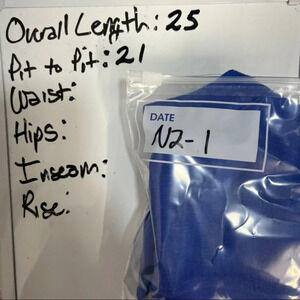 Overall Length: 25
Pit to Pit: 21
Waist:
Hips:
Inseam:
Rise:
DATE
N2-1